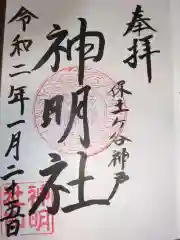 奉拝
保土ヶ谷神戸
神明社
令和二年一月二十五日